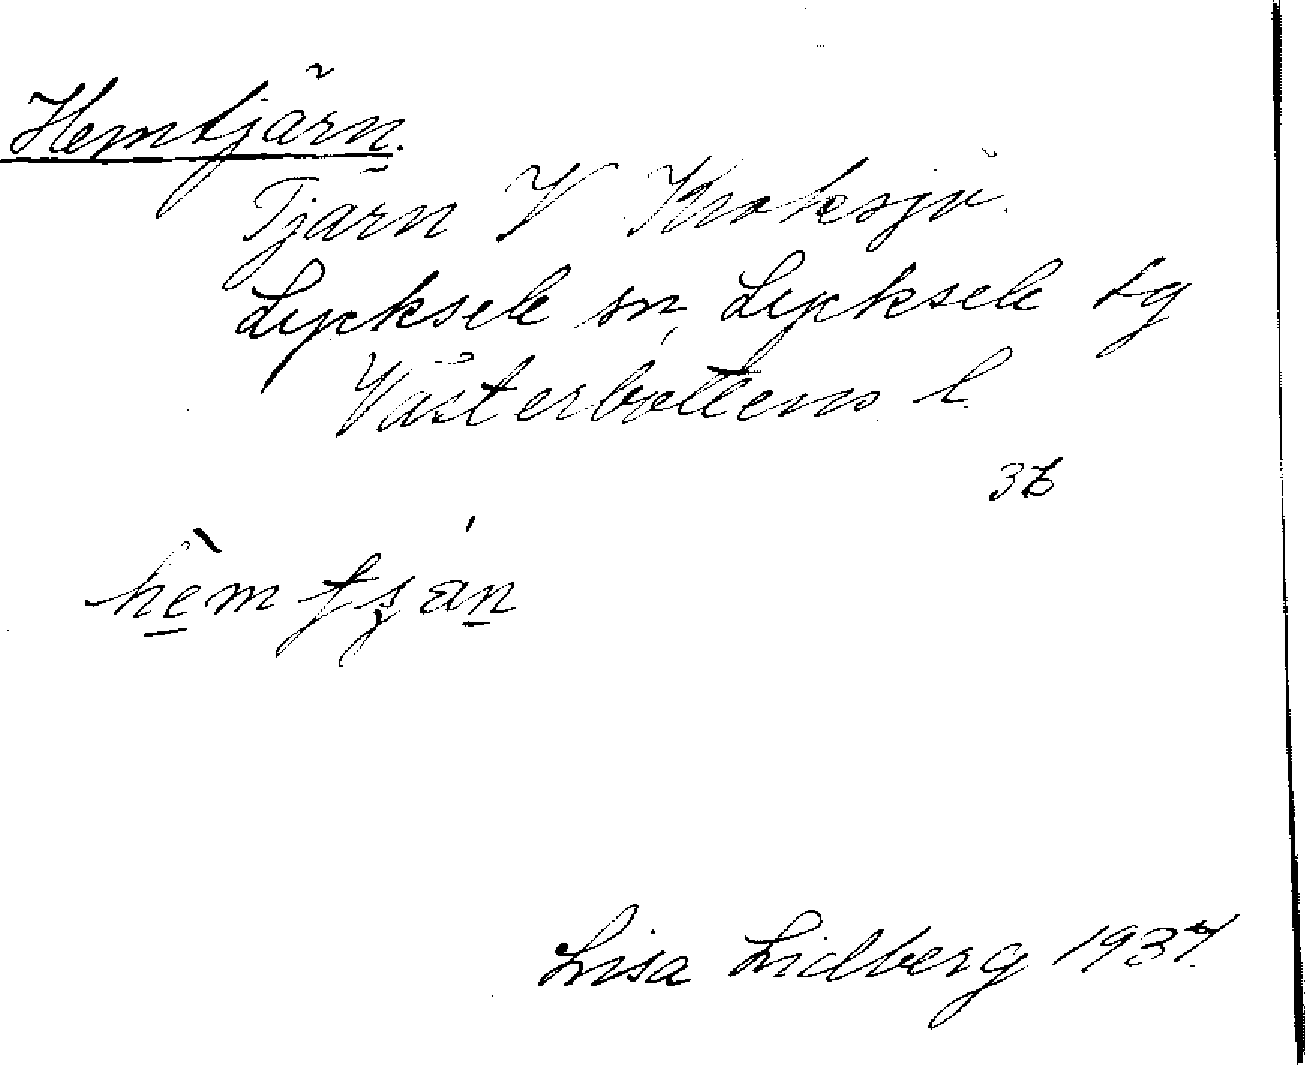 Hemtjärn.
Tjärn V Kroksjö.
Lycksele sn, Lycksele lg
Västerbottens l.
36
Lisa Lidberg 1937.